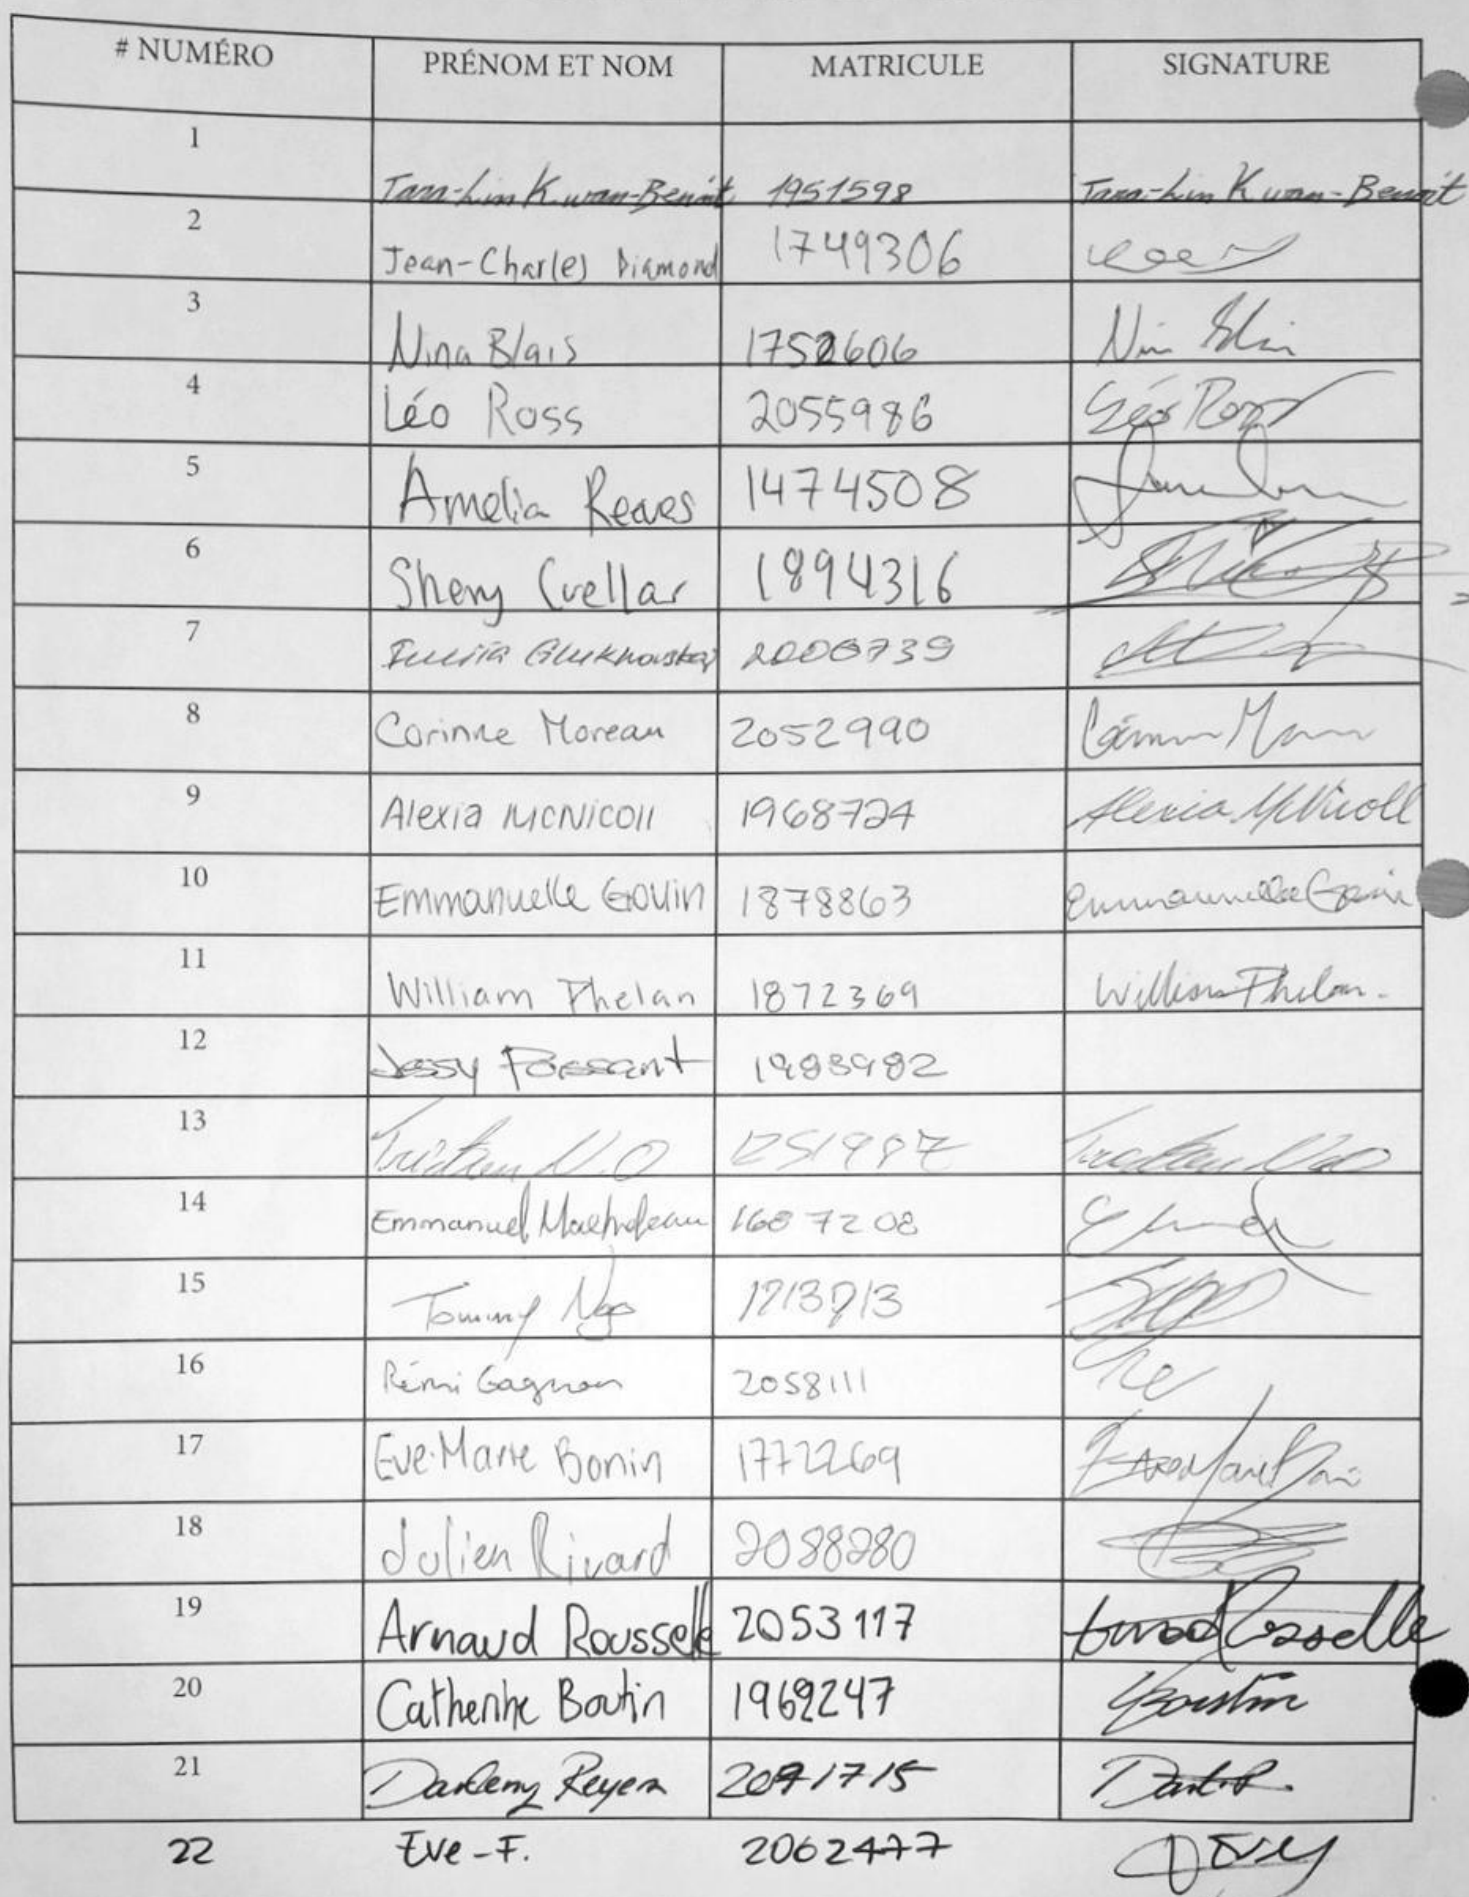 # NUMÉRO PRÉNOM ET NOM MATRICULE SIGNATURE
1 Tara-Lim Kwan-Benoît 1951598 Tara-Lim Kwan-Benoît
2 Jean-Charles Diamond 1749306
3 Nina Blais 1752606
4 Léo Ross 2055986 Léo Ross
5 Amelia Reaves 1474508
6 Shery Cuellar 1894316
7 2006739
8 Corinne Moreau 2052990
9 Alexia McNicoll 1968724 Alexia McNicoll
10 Emmanuelle Gouin 1878863 Emmanuelle Gouin
11 William Phelan 1872369 William Phelan
12 Jessy Poissant
13 Tristan
14 Emmanuel
15 Tommy Ngo
16 Rémi Gagnon 2058111
17 Eve-Marie Bonin 1772269
18 Julien Rivard 2088280
19 Arnaud Rousselle 2053117
20 Catherine Boutin 1969247 Boutin
21 Darleny Reyes
22 Eve-F. 2062477